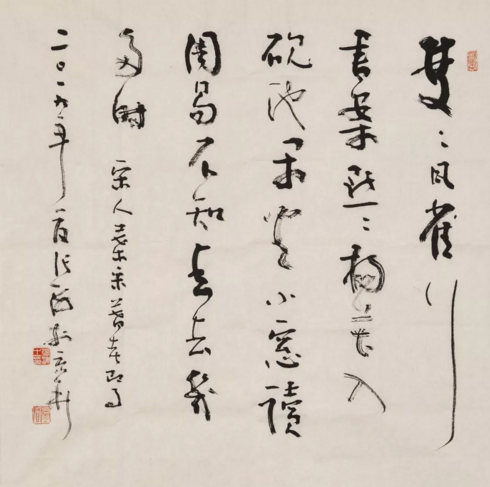 雙〻瓦雀行
書案點〻楊花入
硯池閑坐小窗讀
周易不知春去幾
多時 宋人葉采暮春即事
二〇一九年